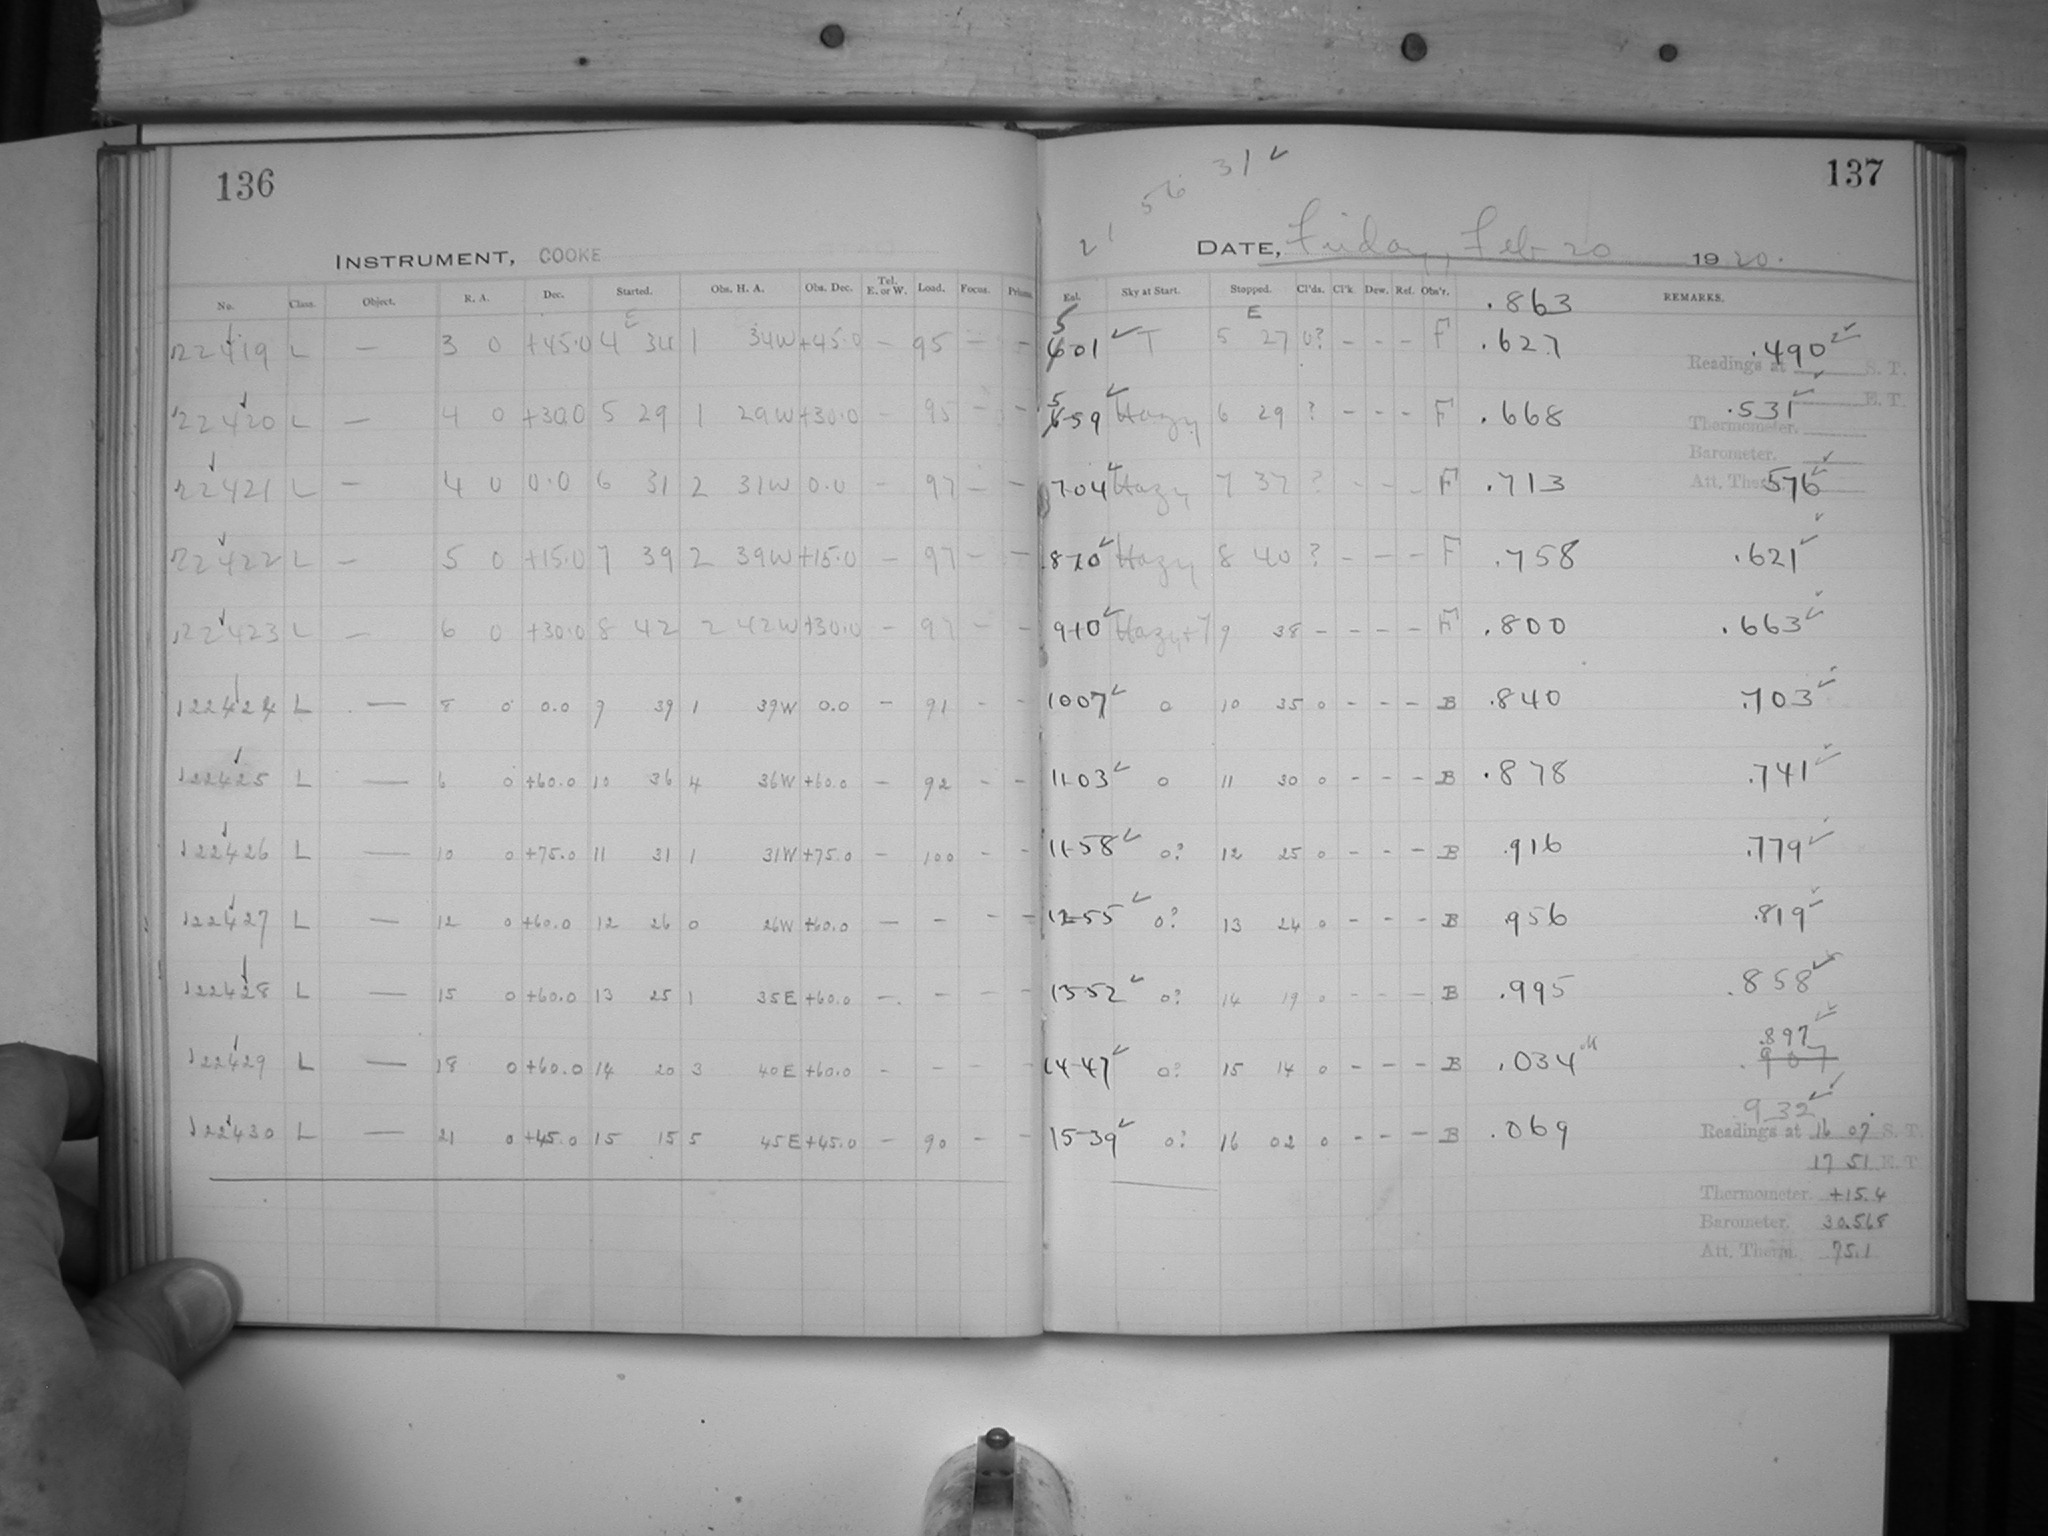 136
INSTRUMENT, COOKE
No. Class. Object. R. A. Dec. Started. Obs. H. A. Obs. Dec. Tel. E. or W. Load. Focus. Prisms.
E
22419 L — 3 0 +45.0 4 34 1 34W +45.0 — 95 — —
22420 L — 4 0 +30.0 5 29 1 29W +30.0 — 95 — —
22421 L — 4 0 0.0 6 31 2 31W 0.0 — 97 — —
22422 L — 5 0 +15.0 7 39 2 39W +15.0 — 97 — —
22423 L — 6 0 +30.0 8 42 2 42W +30.0 — 97 — —
122424 L — 8 0 0.0 9 39 1 39W 0.0 — 91 — —
122425 L — 6 0 +60.0 10 36 4 36W +60.0 — 92 — —
122426 L — 10 0 +75.0 11 31 1 31W +75.0 — 100 — —
122427 L — 12 0 +60.0 12 26 0 26W +60.0 — — — —
122428 L — 15 0 +60.0 13 25 1 35E +60.0 — — — —
122429 L — 18 0 +60.0 14 20 3 40E +60.0 — — — —
122430 L — 21 0 +45.0 15 15 5 45E +45.0 — 90 — —
137
21 56 31 ✓
DATE, Friday, Feb 20 1920.
Sky at Start. Stopped. Cl'ds. Cl'k. Dew. Ref. Obs'r. .863 REMARKS.
E
5 01 ✓ T 5 27 0? — — — F .627 .490 ✓
Readings at S. T.
E. T.
5 59 ✓ Hazy 6 29 ? — — — F .668 .531 ✓
Thermometer.
Barometer.
7 04 ✓ Hazy 7 37 ? — — — F .713 576 ✓
8 10 ✓ Hazy 8 40 ? — — — F .758 .621 ✓
9 10 ✓ Hazy+T 9 38 — — — — F .800 .663 ✓
10 07 ✓ 0 10 35 0 — — — B .840 .703 ✓
11 03 ✓ 0 11 30 0 — — — B .878 .741 ✓
11 58 ✓ 0? 12 25 0 — — — B .916 .779 ✓
12 55 ✓ 0? 13 24 0 — — — B .956 .819 ✓
13 52 ✓ 0? 14 19 0 — — — B .995 .858 ✓
14 47 ✓ 0? 15 14 0 — — — B .034 .897 ✓
907
15 39 ✓ 0? 16 02 0 — — — B .069 932 ✓
Readings at 16 07 S. T.
17 51 E. T.
Thermometer. +15.4
Barometer. 30.568
Att. Therm. 75.1